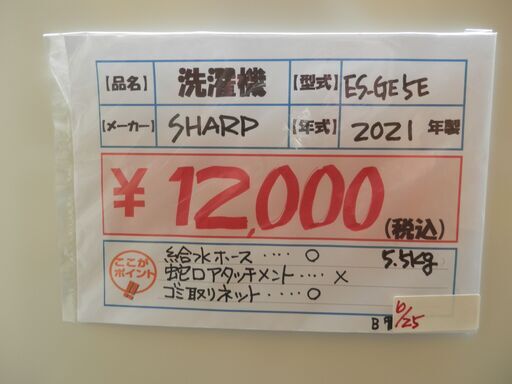 【品名】 洗濯機 【型式】 ES-GE5E
【メーカー】 SHARP 【年式】 2021 年製
¥12,000 (税込)
ここがポイント!!!
給水ホース ‥‥ ○ 5.5kg
蛇口アタッチメント ‥‥ ×
ゴミ取りネット ‥‥‥ ○
6/25